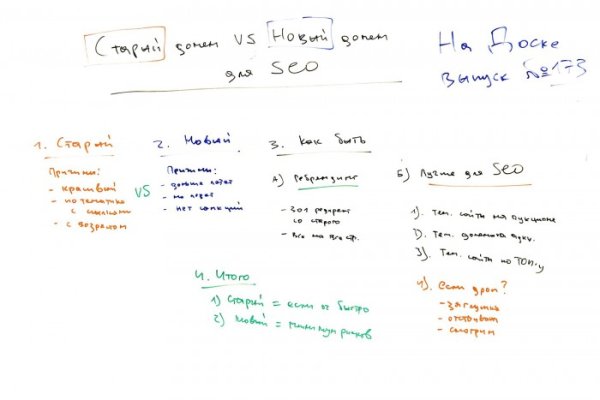 Старый домен VS Новый домен
для SEO
На Доске
выпуск №173
1. Старый
Причины:
- красивый
- по тематике
с ссылками
- с возрастом
VS
2. Новый
Причины:
- дольше
- нет санкций
3. Как быть
А) Ребрендинг
- 301 редирект
со старого
- Все на Все стр.
Б) Лучше для SEO
1). Тем. сайты на аукционе
2). Тем. домена аукц.
3). Тем. сайты по ТОП-у
4). Если дроп?
- заглушка
- отстоять
- смотрим
4. Итого
1) Старый = если ок быстро
2) Новый = минимум рисков